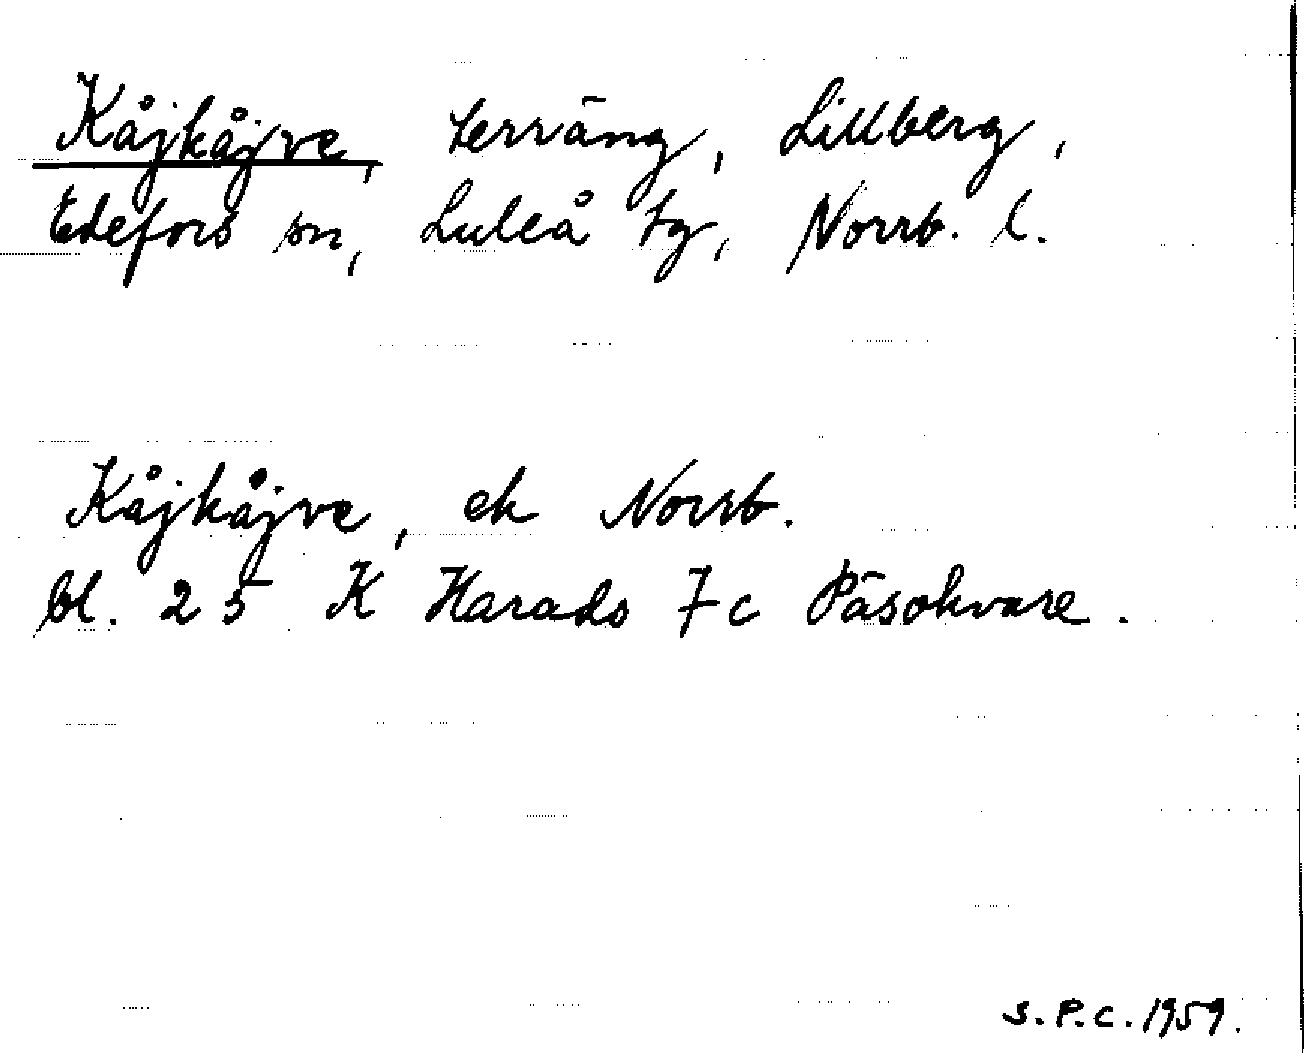 Kåjkåjve, terräng, Lillberg,
Edefors sn, Luleå tg, Norrb. l.
Kåjkåjve, ek Norrb.
bl. 25 K Harads 7 c Päsokvare.
S.P.C. 1959.